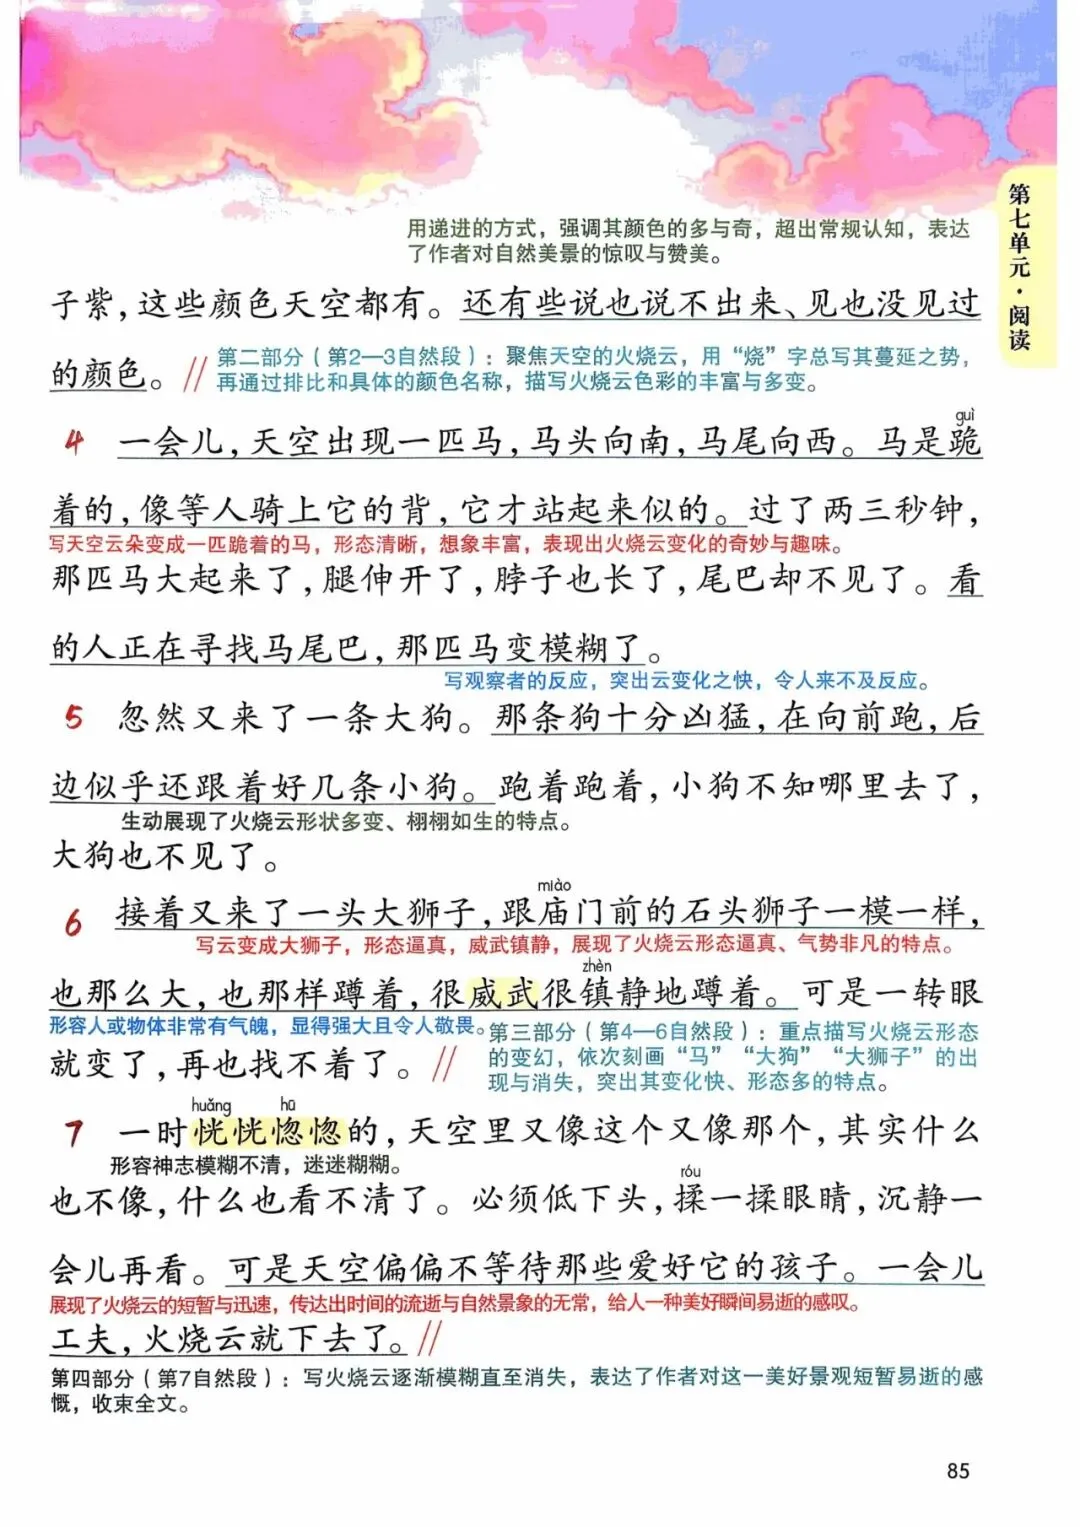 第七单元·阅读
用递进的方式，强调其颜色的多与奇，超出常规认知，表达
了作者对自然美景的惊叹与赞美。
子紫，这些颜色天空都有。还有些说也说不出来、见也没见过
的颜色。//
第二部分（第2—3自然段）：聚焦天空的火烧云，用“烧”字总写其蔓延之势，
再通过排比和具体的颜色名称，描写火烧云色彩的丰富与多变。
guì
4 一会儿，天空出现一匹马，马头向南，马尾向西。马是跪
着的，像等人骑上它的背，它才站起来似的。过了两三秒钟，
写天空云朵变成一匹跪着的马，形态清晰，想象丰富，表现出火烧云变化的奇妙与趣味。
那匹马大起来了，腿伸开了，脖子也长了，尾巴却不见了。看
的人正在寻找马尾巴，那匹马变模糊了。
写观察者的反应，突出云变化之快，令人来不及反应。
5 忽然又来了一条大狗。那条狗十分凶猛，在向前跑，后
边似乎还跟着好几条小狗。跑着跑着，小狗不知哪里去了，
生动展现了火烧云形状多变、栩栩如生的特点。
大狗也不见了。
miào
6 接着又来了一头大狮子，跟庙门前的石头狮子一模一样，
写云变成大狮子，形态逼真，威武镇静，展现了火烧云形态逼真、气势非凡的特点。
zhèn
也那么大，也那样蹲着，很威武很镇静地蹲着。可是一转眼
形容人或物体非常有气魄，显得强大且令人敬畏。
就变了，再也找不着了。//
第三部分（第4—6自然段）：重点描写火烧云形态
的变幻，依次刻画“马”“大狗”“大狮子”的出
现与消失，突出其变化快、形态多的特点。
huǎng hū
7 一时恍恍惚惚的，天空里又像这个又像那个，其实什么
形容神志模糊不清，迷迷糊糊。
róu
也不像，什么也看不清了。必须低下头，揉一揉眼睛，沉静一
会儿再看。可是天空偏偏不等待那些爱好它的孩子。一会儿
展现了火烧云的短暂与迅速，传达出时间的流逝与自然景象的无常，给人一种美好瞬间易逝的感叹。
工夫，火烧云就下去了。//
第四部分（第7自然段）：写火烧云逐渐模糊直至消失，表达了作者对这一美好景观短暂易逝的感
慨，收束全文。
85